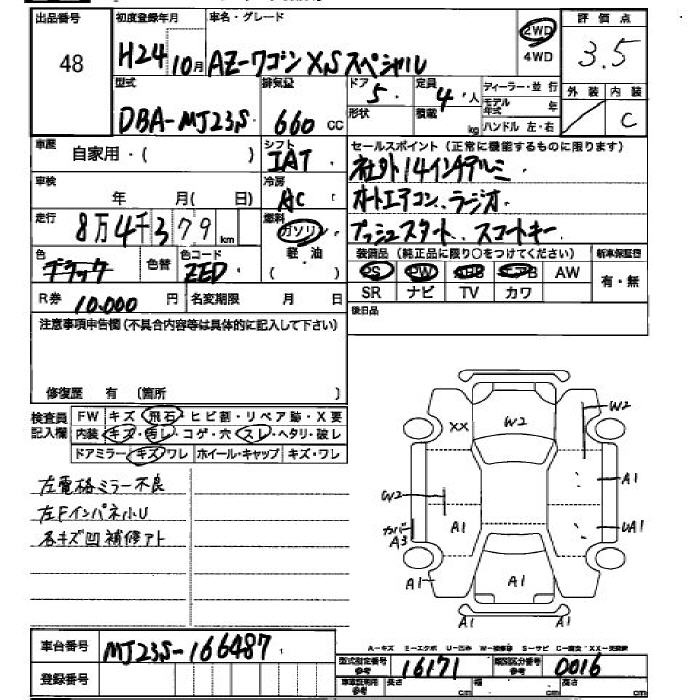 出品番号
48
初度登録年月
H24 10月
車名・グレード
AZ-ワゴン XSスペシャル
2WD
4WD
評価点
3.5
外装 内装
C
型式
DBA-MJ23S
排気量
660 cc
ドア
5
形状
定員
4人
積載
kg
ディーラー・並行
モデル年式 年
ハンドル 左・右
車歴
自家用・( )
シフト
IAT
車検
年 月( 日)
冷房
AC
走行
8万4千379 km
燃料
ガソリン
軽・油
( )
色
ブラック
色替
色コード
ZED
R券 10,000 円
名変期限 月 日
セールスポイント(正常に機能するものに限ります)
社外14インチアルミ
オートエアコン、ラジオ
プッシュスタート、スマートキー
装備品(純正品に限り○をつけてください)
新車保証書
PS PW ABS エアB AW
SR ナビ TV カワ
有・無
後日品
注意事項申告欄(不具合内容等は具体的に記入して下さい)
修復歴 有 〔箇所 〕
検査員記入欄
FW キズ・飛石・ヒビ割・リペア跡・X要
内装 キズ・汚レ・コゲ・穴・スレ・ヘタリ・破レ
ドアミラー キズ・ワレ ホイール・キャップ キズ・ワレ
左電格ミラー不良
左Fインパネ小U
各キズ凹補修アト
XX
W2
W2
W2
A1
A1
UA1
カバー
A3
A1
A1
A1
A1
A-キズ
車台番号
MJ23S-166487
登録番号
型式指定番号
参考
16171
類別区分番号
参考
0016
長さ cm
幅 cm
高さ cm